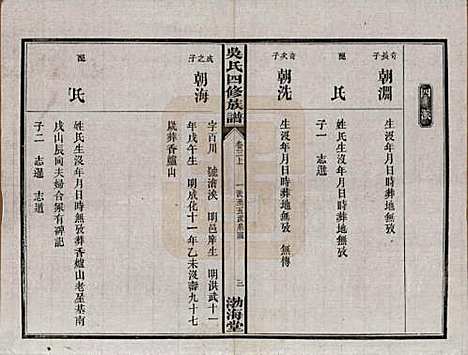 奇長子
朝淵
生沒年月日時葬地無攷
配
氏
姓氏生沒年月日時葬地無攷
子一
志選
奇次子
朝洗
生沒年月日時葬地無攷 無傳
吳氏四修族譜
卷三上
三
渤海堂
成之子
朝海
字百川 號滄溪 明邑庠生 明洪武十一
年戊午生 明成化十一年乙未沒壽九十七
葬香爐山
配
氏
姓氏生沒年月日時無攷葬香爐山老屋基南
戌山辰向夫婦合冢有碑記
子二 志暹 志道